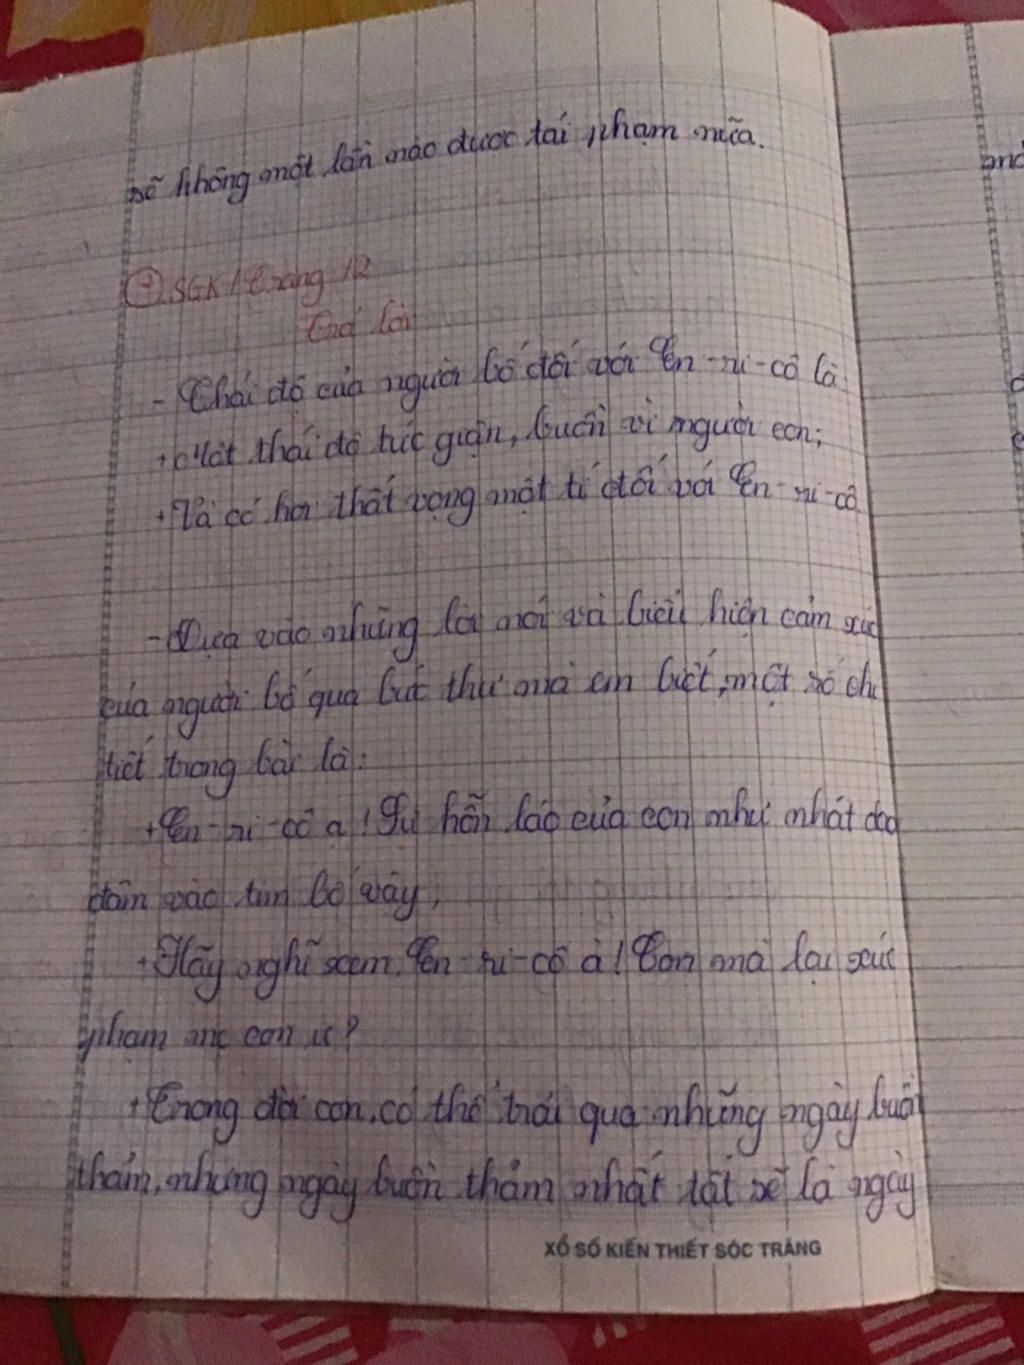 sẽ không một lần nào được tái phạm nữa.
② SGK / Trang 12
Trả lời
- Thái độ của người bố đối với En-ri-cô là:
+ Một thái độ tức giận, buồn vì người con;
+ Và có hơi thất vọng một tí đối với En-ri-cô
- Dựa vào những lời nói và biểu hiện cảm xúc
của người bố qua bức thư mà em biết, một số chi
tiết trong bài là:
+ En-ri-cô ạ! Sự hỗn láo của con như nhát dao
đâm vào tim bố vậy,
+ Hãy nghĩ xem, En-ri-cô à! Con mà lại xúc
phạm mẹ con ư?
+ Trong đời con, có thể trải qua những ngày buồn
thảm, nhưng ngày buồn thảm nhất tất sẽ là ngày
XỔ SỐ KIẾN THIẾT SÓC TRĂNG